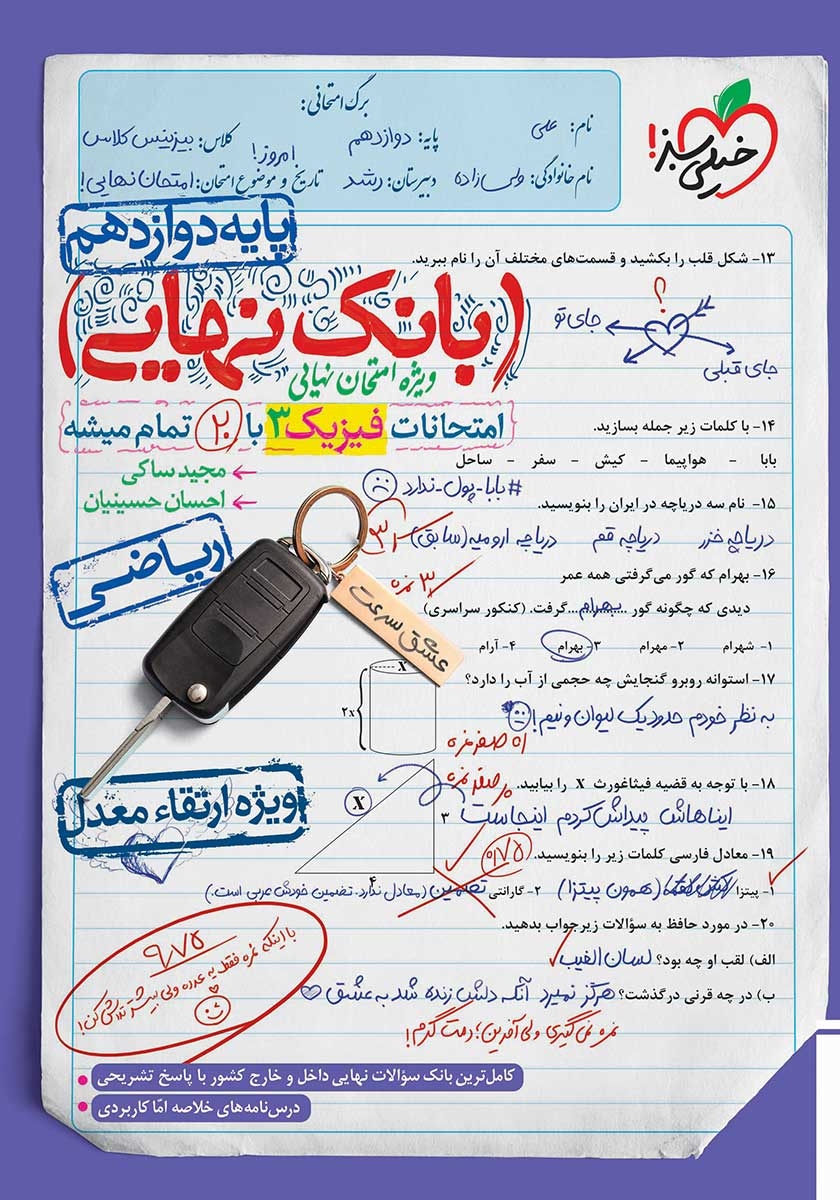 خیلی سبز!
برگ امتحانی:
نام: علی
پایه: دوازدهم
کلاس: بیزینس کلاس
نام خانوادگی: ولی زاده
دبیرستان: رشد
تاریخ و موضوع امتحان: امروز! امتحان نهایی!
پایه دوازدهم
(بانک نهایی)
ویژه امتحان نهایی
{امتحانات فیزیک ۳ با ۲۰ تمام میشه}
← مجید ساکی
← احسان حسینیان
ریاضی
عشق سرعت
ویژه ارتقاء معدل
۱۳- شکل قلب را بکشید و قسمت‌های مختلف آن را نام ببرید.
؟
جای تو
جای قبلی
۱۴- با کلمات زیر جمله بسازید.
بابا - هواپیما - کیش - سفر - ساحل
#بابا_پول_ندارد
۱۵- نام سه دریاچه در ایران را بنویسید.
دریاچه خزر دریاچه قم دریاچه ارومیه (سابق)
۱۶- بهرام که گور می‌گرفتی همه عمر
۳ نمره
دیدی که چگونه گور ...بهرام... گرفت. (کنکور سراسری)
۱- شهرام ۲- مهرام ۳- بهرام ۴- آرام
۱۷- استوانه روبرو گنجایش چه حجمی از آب را دارد؟
x
۲x
به نظر خودم حدود یک لیوان و نیم!
اه صفر نمره
۱۸- با توجه به قضیه فیثاغورث x را بیابید.
صفر نمره
X
۳
۴
ایناهاش پیداش کردم اینجاست
۱۹- معادل فارسی کلمات زیر را بنویسید.
۰/۷۵
۱- پیتزا (همون پیتزا) ۲- گارانتی تضمین (معادل ندارد. تضمین خودش عربی است.)
۲۰- در مورد حافظ به سؤالات زیر جواب بدهید.
الف) لقب او چه بود؟ لسان الغیب
ب) در چه قرنی درگذشت؟ هرگز نمیرد آنکه دلش زنده شد به عشق
نمره نمی‌گیری ولی آفرین؛ دمت گرم!
۹/۷۵
با اینکه نمره فقط یه عدده ولی بیشتر تلاش کن!
کامل‌ترین بانک سؤالات نهایی داخل و خارج کشور با پاسخ تشریحی
درس‌نامه‌های خلاصه امّا کاربردی